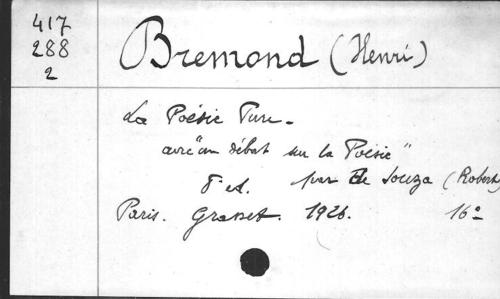 417
288
2
Bremond (Henri)
La Poésie Pure.
avec "un débat sur la Poésie"
8e ed. par De Souza (Robert)
Paris. Grasset. 1926. 16°